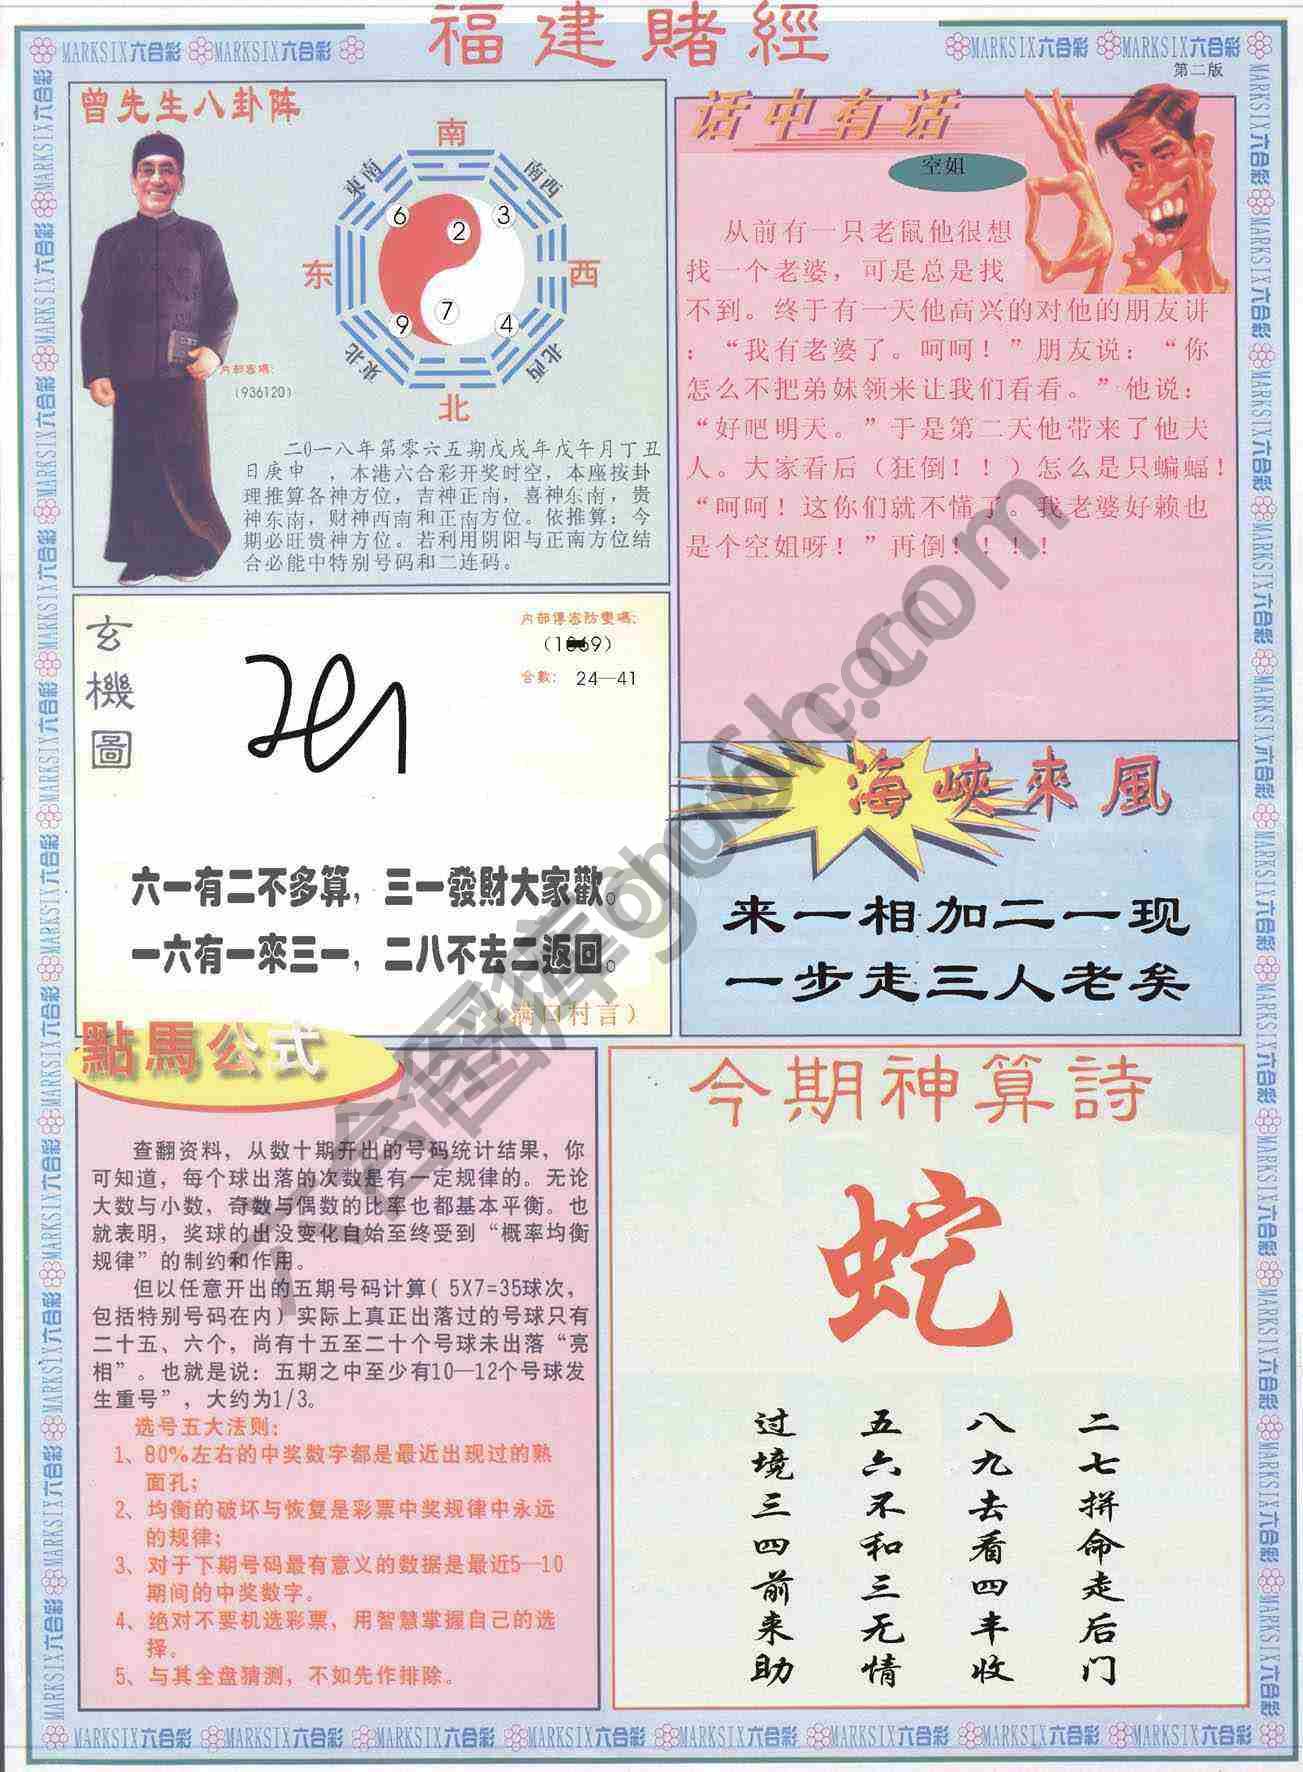 福建賭經
第二版
MARKSIX六合彩
曾先生八卦阵
南
東南
南西
东
西
東北
北西
北
6
2
3
9
7
4
内部密碼：
（936120）
二0一八年第零六五期戊戌年戊午月丁丑
日庚申　，本港六合彩开奖时空，本座按卦
理推算各神方位，吉神正南，喜神东南，贵
神东南，财神西南和正南方位。依推算：今
期必旺贵神方位。若利用阴阳与正南方位结
合必能中特别号码和二连码。
话中有话
空姐
从前有一只老鼠他很想
找一个老婆，可是总是找
不到。终于有一天他高兴的对他的朋友讲
：“我有老婆了。呵呵！”朋友说：“你
怎么不把弟妹领来让我们看看。”他说：
“好吧明天。”于是第二天他带来了他夫
人。大家看后（狂倒！！）怎么是只蝙蝠！
“呵呵！这你们就不懂了。我老婆好赖也
是个空姐呀！”再倒！！！！
玄機圖
内部傳密防變碼：
合數： 24—41
六一有二不多算，三一發財大家歡。
一六有一來三一，二八不去二返回。
（满口村言）
海峽來風
来一相加二一现
一步走三人老矣
點馬公式
查翻资料，从数十期开出的号码统计结果，你
可知道，每个球出落的次数是有一定规律的。无论
大数与小数，奇数与偶数的比率也都基本平衡。也
就表明，奖球的出没变化自始至终受到“概率均衡
规律”的制约和作用。
但以任意开出的五期号码计算（5X7=35球次，
包括特别号码在内）实际上真正出落过的号球只有
二十五、六个，尚有十五至二十个号球未出落“亮
相”。也就是说：五期之中至少有10—12个号球发
生重号”，大约为1/3。
选号五大法则：
1、80%左右的中奖数字都是最近出现过的熟
面孔；
2、均衡的破坏与恢复是彩票中奖规律中永远
的规律；
3、对于下期号码最有意义的数据是最近5—10
期间的中奖数字。
4、绝对不要机选彩票，用智慧掌握自己的选
择。
5、与其全盘猜测，不如先作排除。
今期神算詩
蛇
二七拼命走后门
八九去看四丰收
五六不和三无情
过境三四前来助